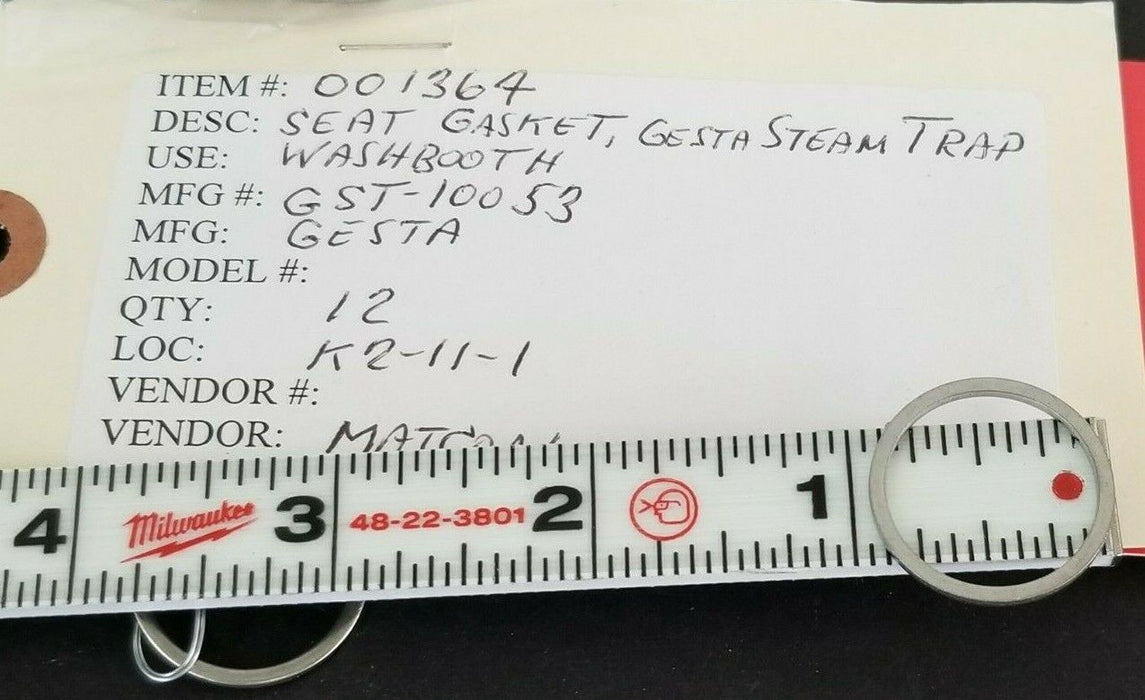 ITEM #: 001364
DESC: SEAT GASKET, GESTA STEAM TRAP
USE: WASHBOOTH
MFG #: GST-10053
MFG: GESTA
MODEL #:
QTY: 12
LOC: K2-11-1
VENDOR #:
VENDOR:
4 Milwaukee 3 48-22-3801 2 1